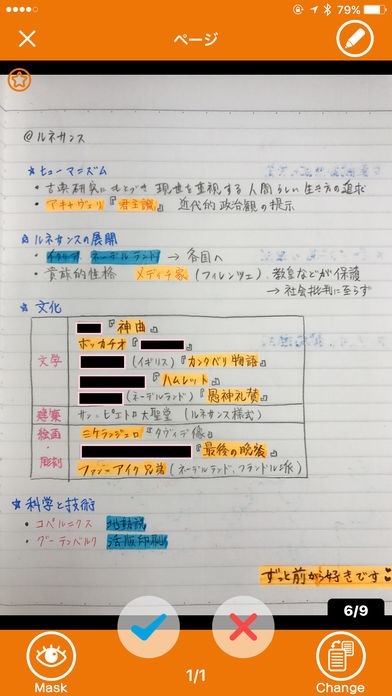 79%
ページ
@ルネサンス
☆ヒューマニズム
・古典研究にもとづき 現世を重視する人間らしい生き方の追求
・マキャヴェリ『君主論』 近代的政治観の提示
☆ルネサンスの展開
・イタリア ネーデルラント → 各国へ
・貴族的性格 メディチ家(フィレンツェ)、教皇などが保護
→ 社会批判に至らず
☆文化
文学
『神曲』
ボッカチオ『
(イギリス)『カンタベリ物語』
『ハムレット』
(ネーデルラント)『愚神礼賛』
建築 サン=ピエトロ大聖堂 (ルネサンス様式)
絵画・彫刻
ミケランジェロ『ダヴィデ像』
『最後の晩餐』
ファン=アイク兄弟(ネーデルラント、フランドル派)
☆科学と技術
・コペルニクス 地動説
・グーテンベルク 活版印刷
ずっと前から好きです
6/9
Mask
1/1
Change